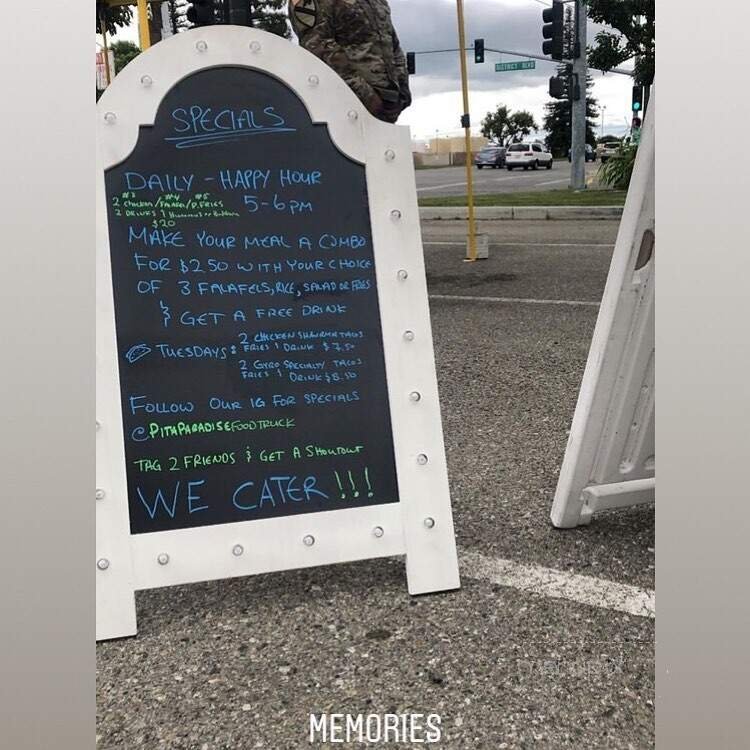 DISTRICT BLVD
SPECIALS
DAILY - HAPPY HOUR
5-6 PM
#3 #4 #5
2 Chicken / Falafel / P. Fries
2 Drinks & Hummus or
$20
MAKE YOUR MEAL A COMBO
FOR $2.50 WITH YOUR CHOICE
OF 3 FALAFELS, RICE, SALAD OR FRIES
& GET A FREE DRINK
TUESDAYS: 2 CHICKEN SHAWRMA TACOS
FRIES & DRINK $7.50
2 GYRO SPECIALTY TACOS
FRIES & DRINK $8.50
FOLLOW OUR IG FOR SPECIALS
@PITAPARADISEFOODTRUCK
TAG 2 FRIENDS & GET A SHOUTOUT
WE CATER!!!
MEMORIES